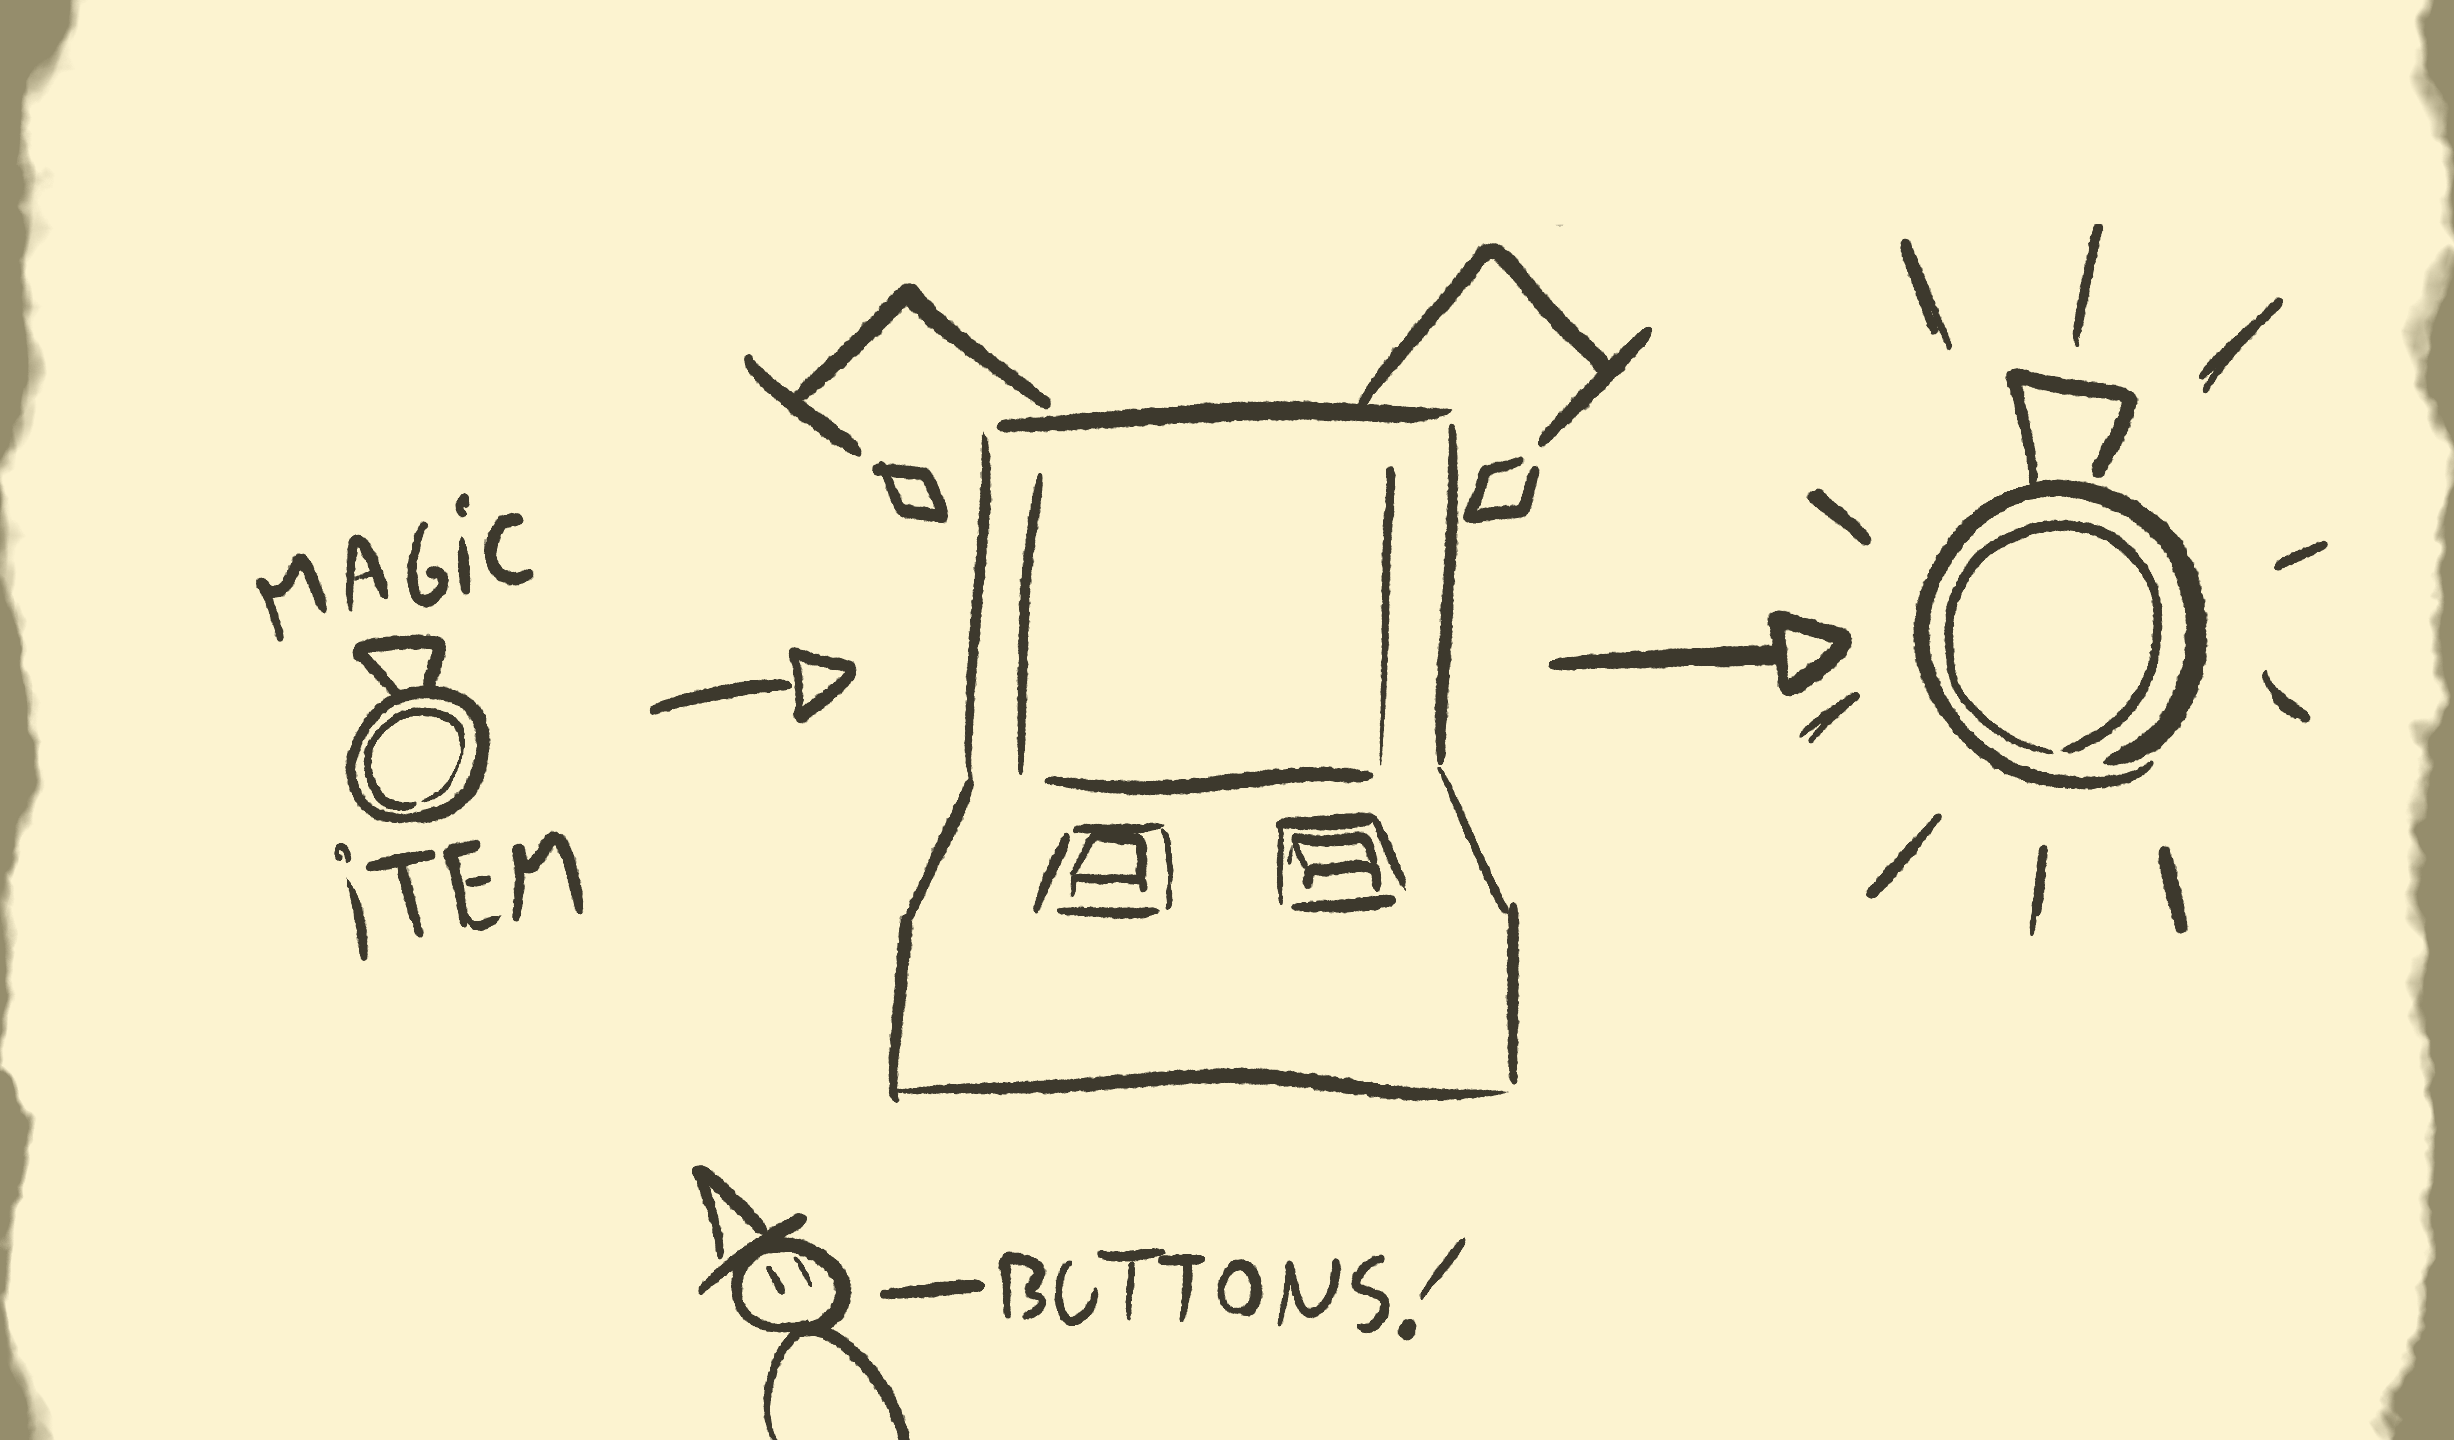 MAGiC
iTEM
BUTTONS!